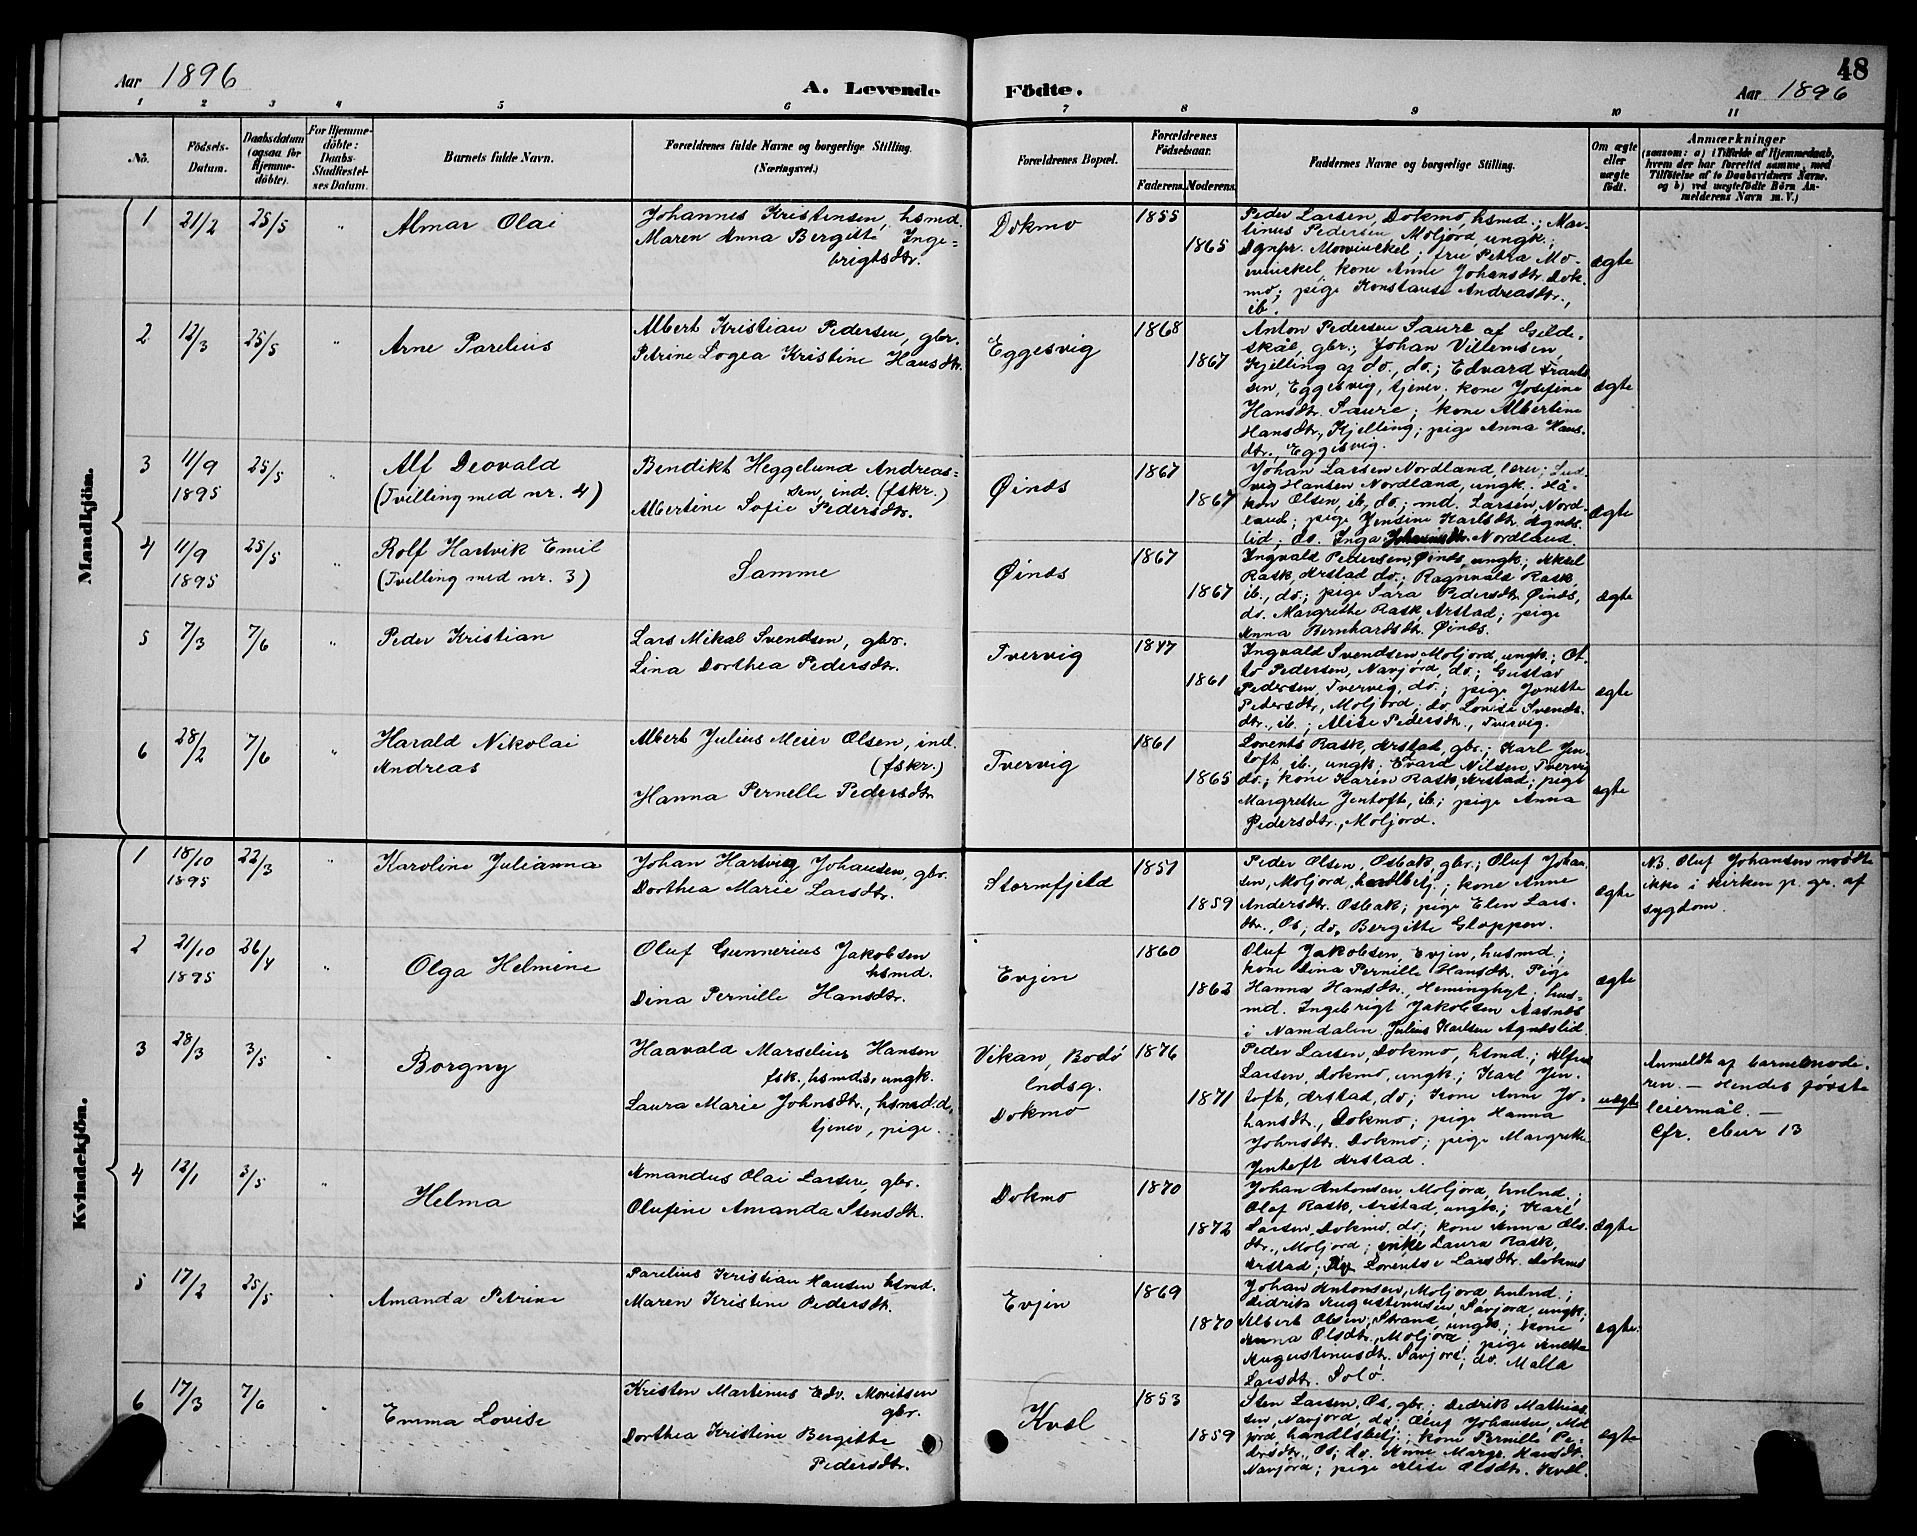 48
Aar 1896
A. Levende Födte.
Aar 1896
1 2 3 4 5 6 7 8 9 10 11
No.
Födsels-
Datum.
Daabsdatum
(ogsaa for
Hjemme-
döbte).
For Hjemme-
döbte:
Daabs-
Stadfæstel-
ses Datum.
Barnets fulde Navn.
Forældrenes fulde Navne og borgerlige Stilling.
(Næringsvei.)
Forældrenes Bopæl.
Forældrenes
Födselsaar.
Faderens. Moderens.
Faddernes Navne og borgerlige Stilling.
Om ægte
eller
uægte
født.
Anmærkninger
(saasom: a) i Tilfælde af Hjemmedaab,
hvem der har forrettet samme, med
Tilföielse af to Daabsvidners Navne,
og b) ved uægtefödte Börn An-
melderens Navn m. V.)
Mandkjön.
1 21/2 25/5 "
Almar Olai
Johannes Kristensen, hsmd.
Maren Anna Bergitte Inge-
brigtsdtr.
Dokmo
1855
1865
Peder Larsen, Dokmo, hsmd.; Mar-
tinus Pedersen Moljord, ungk.;
Dgnpr. Mowinckel; fru Petra Mo-
winckel, kone Anne Johansdtr. Dok-
mo; pige Konstanse Andreasdtr.,
ib.
ægte
2 12/3 25/5 "
Arne Parelius
Albert Kristian Pedersen, gbr.
Petrine Logea Kristine Hansdtr.
Eggesvig
1868
1867
Anton Pedersen Saure af Gilde-
skål, gbr.; Johan Villumsen,
Kjelling af do., do.; Edvard Frant-
sen, Eggesvig, tjener. kone Josefine
Hansdtr. Saure; kone Albertine
Hansdtr, Kjelling; pige Anna Hans-
dtr., Eggesvig.
ægte
3 11/9 1895 25/5 "
Alf Deovald
(Tvilling med nr. 4)
Bendikt Heggelund Andreas-
sen, ind. (fskr.)
Albertine Sofie Pedersdtr.
Øinæs
1867
1867
Johan Larsen Nordland lærer; Lud-
vig Hansen Nordland, ungk. Hå-
kon Olsen, ib, do.; md. Larsen, Nord-
land; pige Jensine Karlsdtr. Agnes-
lid; do. Inga Nordland.
ægte
4 11/9 1895 25/5 "
Rolf Hartvik Emil
(Tvilling med nr. 3)
Samme
Øinæs
1867
1867
Ingvald Pedersen, Øinæs, ungk; Aksel
Rask, Arstad do.; Ragnvald Rask,
ib., do.; pige Sara Pedersdtr. Øinæs,
do. Margrethe Rask Arstad; pige
Anna Bernhardsdtr. Øinæs.
ægte
5 7/3 7/6 "
Peder Kristian
Lars Mikal Svendsen, gbr.
Lina Dorthea Pedersdtr.
Tvervig
1847
1861
Ingvald Svendsen Moljord, ungk.; Ot-
to Pedersen, Navjord, do.; Gustav
Pedersen, Tvervig, do.; pige Jonette
Pedersdtr., Moljord; do Lovise Svends-
dtr., ib.; Alise Pedersdtr., Tvervig.
ægte
6 28/2 7/6 "
Harald Nikolai
Andreas
Albert Julius Meier Olsen, ind.
(fskr.)
Hanna Pernelle Pedersdtr.
Tvervig
1861
1865
Lorents Rask, Arstad, gbr.; Karl Jen-
toft, ib., ungk. Evard Nilsen, Tvervig
do.; kone Karen Rask, Arstad; pige
Margrethe Jentoft, ib; pige Anna
Pedersdtr., Moljord.
ægte
Kvindekjön.
1 18/10 1895 22/3 "
Karoline Julianna
Johan Hartvig Johansen, gbr.
Dorthea Marie Larsdtr.
Stormfjeld
1851
1859
Peder Olsen, Osbak gbr; Oluf Johan-
sen, Moljord, handlbetj.; kone Anne
Andersdtr. Osbak; pige Elen Lars-
dtr., Os; do. Bergitte Gloppen.
ægte
NB. Oluf Johansen mødte
ikke i kirken p. gr. af
sygdom.
2 21/10 1895 26/4 "
Olga Helmine
Oluf Gunnerius Jakobsen
hsmd.
Dina Pernille Hansdtr.
Evjen
1860
1862
Oluf Jakobsen, Evjen, husmd;
kone Dina Pernille Hansdtr. Pige
Hanna Hansdtr., Heminghyt. hus-
md. Ingebrigt Jakobsen Aasnes
i Namdalen. Julius Karlsen Agneslid.
ægte
3 28/3 3/5 "
Borgny
Haavald Marselius Hansen
fsk., hsmds. ungk.
Laura Marie Johnsdtr., hsmd.d.
tjener, pige.
Vikan, Bodø
lndsg.
Dokmo
1876
1871
Peder Larsen, Dokmo, hsmd.; Alfred
Larsen, Dokmo, ungk.; Karl Jen-
toft, Arstad, do; kone Anne Jo-
hansdtr., Dokmo; pige Hanna
Johnsdtr. Dokmo; pige Margrethe
Jentoft Arstad.
uægte
Anmeldt af barnemode-
ren. — Hendes første
leiermål. —
Cfr. Mur 13
4 12/1 3/5 "
Helma
Amandus Olai Larsen, gbr.
Olufine Amanda Stensdtr.
Dokmo
1870
1872
Johan Antonsen, Moljord, hnlnd.;
Olaf Rask, Arstad, ungk.; Karl
Larsen, Dokmo. do; kone Anna Ols-
dtr., Moljord; enke Laura Rask,
Arstad; Lorentse Larsdtr. Dokmo
ægte
5 17/2 25/5 "
Amanda Petrine
Parelius Kristian Hansen hsmd.
Maren Kristine Pedersdtr.
Evjen
1869
1870
Johan Antonsen, Moljord hnlnd.;
Didrik Augustinusen, Savjord, ungk.
Albert Olsen, Strand, ungk.; kone
Anna Olsdtr., Moljord; pige Anette
Augustinusdtr. Savjord; do. Malla
Larsdtr. Solø
ægte
6 17/3 7/6 "
Emma Lovise
Kristen Martinus Edv. Moritsen
gbr.
Dorthea Kristine Bergitte
Pedersdtr.
Kvæl
1853
1859
Sten Larsen, Os, gbr.; Dedrik Mathias-
sen, Navjord, do; Oluf Johansen, Mol-
jord handlsbetj.; kone Pernille Pe-
dersdtr., Os; do. Anne Marge Hansdtr.
Navjord; pige Alise Olsdtr. Kvæl.
ægte